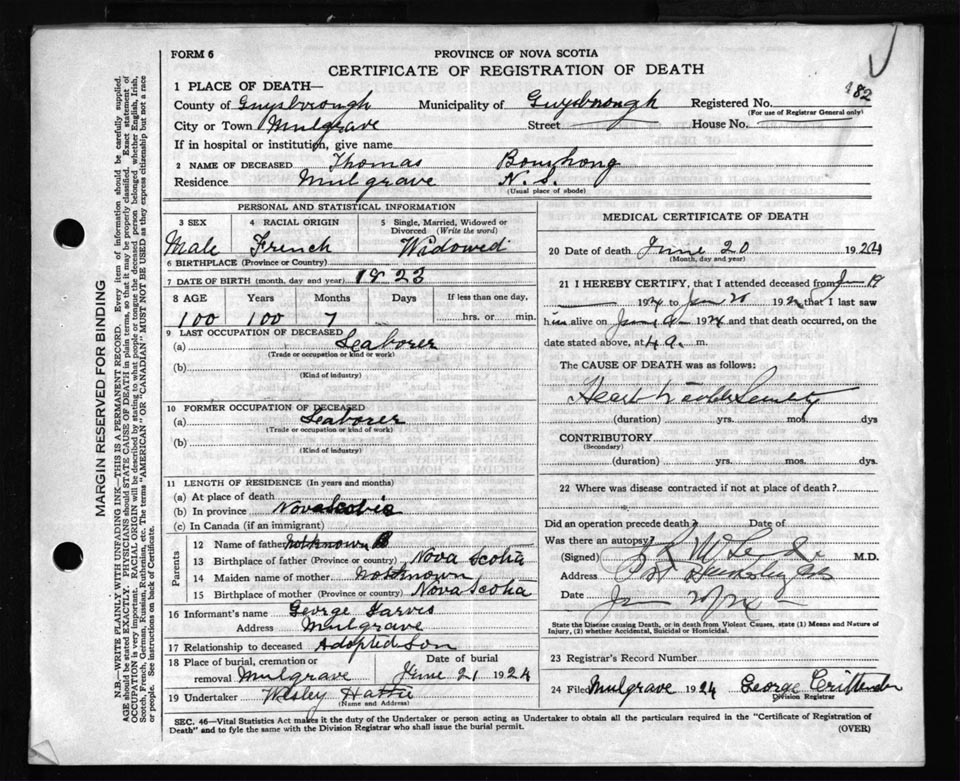 FORM 6
PROVINCE OF NOVA SCOTIA
CERTIFICATE OF REGISTRATION OF DEATH
182
1 PLACE OF DEATH—
County of Guysborough Municipality of Guysborough Registered No.
(For use of Registrar General only)
City or Town Mulgrave Street House No.
If in hospital or institution, give name
2 NAME OF DECEASED Thomas
Residence Mulgrave N. S.
(Usual place of abode)
PERSONAL AND STATISTICAL INFORMATION
3 SEX 4 RACIAL ORIGIN 5 Single, Married, Widowed or Divorced (Write the word)
Male French Widowed
6 BIRTHPLACE (Province or Country)
7 DATE OF BIRTH (month, day and year) 1823
8 AGE Years Months Days If less than one day,
100 100 7 hrs. or min.
9 LAST OCCUPATION OF DECEASED
(a) Leaborer
(Trade or occupation or kind or work)
(b)
(Kind of industry)
10 FORMER OCCUPATION OF DECEASED
(a) Leaborer
(Trade or occupation or kind of work)
(b)
(Kind of industry)
11 LENGTH OF RESIDENCE (In years and months)
(a) At place of death
(b) In province Nova Scotia
(c) In Canada (if an immigrant)
Parents
12 Name of father Not known
13 Birthplace of father (Province or country) Nova Scotia
14 Maiden name of mother Not known
15 Birthplace of mother (Province or Country) Nova Scotia
16 Informant's name George Jarvis
Address Mulgrave
17 Relationship to deceased Adopted Son
18 Place of burial, cremation or removal Mulgrave Date of burial June 21 1924
19 Undertaker Wesley Hattie
(Name and Address)
MEDICAL CERTIFICATE OF DEATH
20 Date of death June 20 1924
(Month, day and year)
21 I HEREBY CERTIFY, that I attended deceased from
1924 to 192 that I last saw
him alive on 1924 and that death occurred, on the
date stated above, at 4 a. m.
The CAUSE OF DEATH was as follows:
Heart
(duration) yrs. mos. dys
CONTRIBUTORY
(Secondary)
(duration) yrs. mos. dys.
22 Where was disease contracted if not at place of death?
Did an operation precede death? Date of
Was there an autopsy?
(Signed) M.D.
Address Port Hawkesbury
Date
State the Disease causing Death, or in death from Violent Causes, state (1) Means and Nature of
Injury, (2) whether Accidental, Suicidal or Homicidal.
23 Registrar's Record Number
24 Filed Mulgrave 1924 George Crittenden
Division Registrar
SEC. 46—Vital Statistics Act makes it the duty of the Undertaker or person acting as Undertaker to obtain all the particulars required in the "Certificate of Registration of
Death" and to fyle the same with the Division Registrar who shall issue the burial permit.
(OVER)
MARGIN RESERVED FOR BINDING
N.B.—WRITE PLAINLY WITH UNFADING INK—THIS IS A PERMANENT RECORD. Every item of information should be carefully supplied.
AGE should be stated EXACTLY. PHYSICIANS should STATE CAUSE OF DEATH in plain terms, so that it may be properly classified. Exact statement of
OCCUPATION is very important. RACIAL ORIGIN will be described by stating to what people or tongue the deceased person belonged whether English, Irish,
Scotch, French, German, Russian, Ruthenian, etc. The terms "AMERICAN" OR "CANADIAN" MUST NOT BE USED as they express citizenship but not a race
or people. See instructions on back of Certificate.